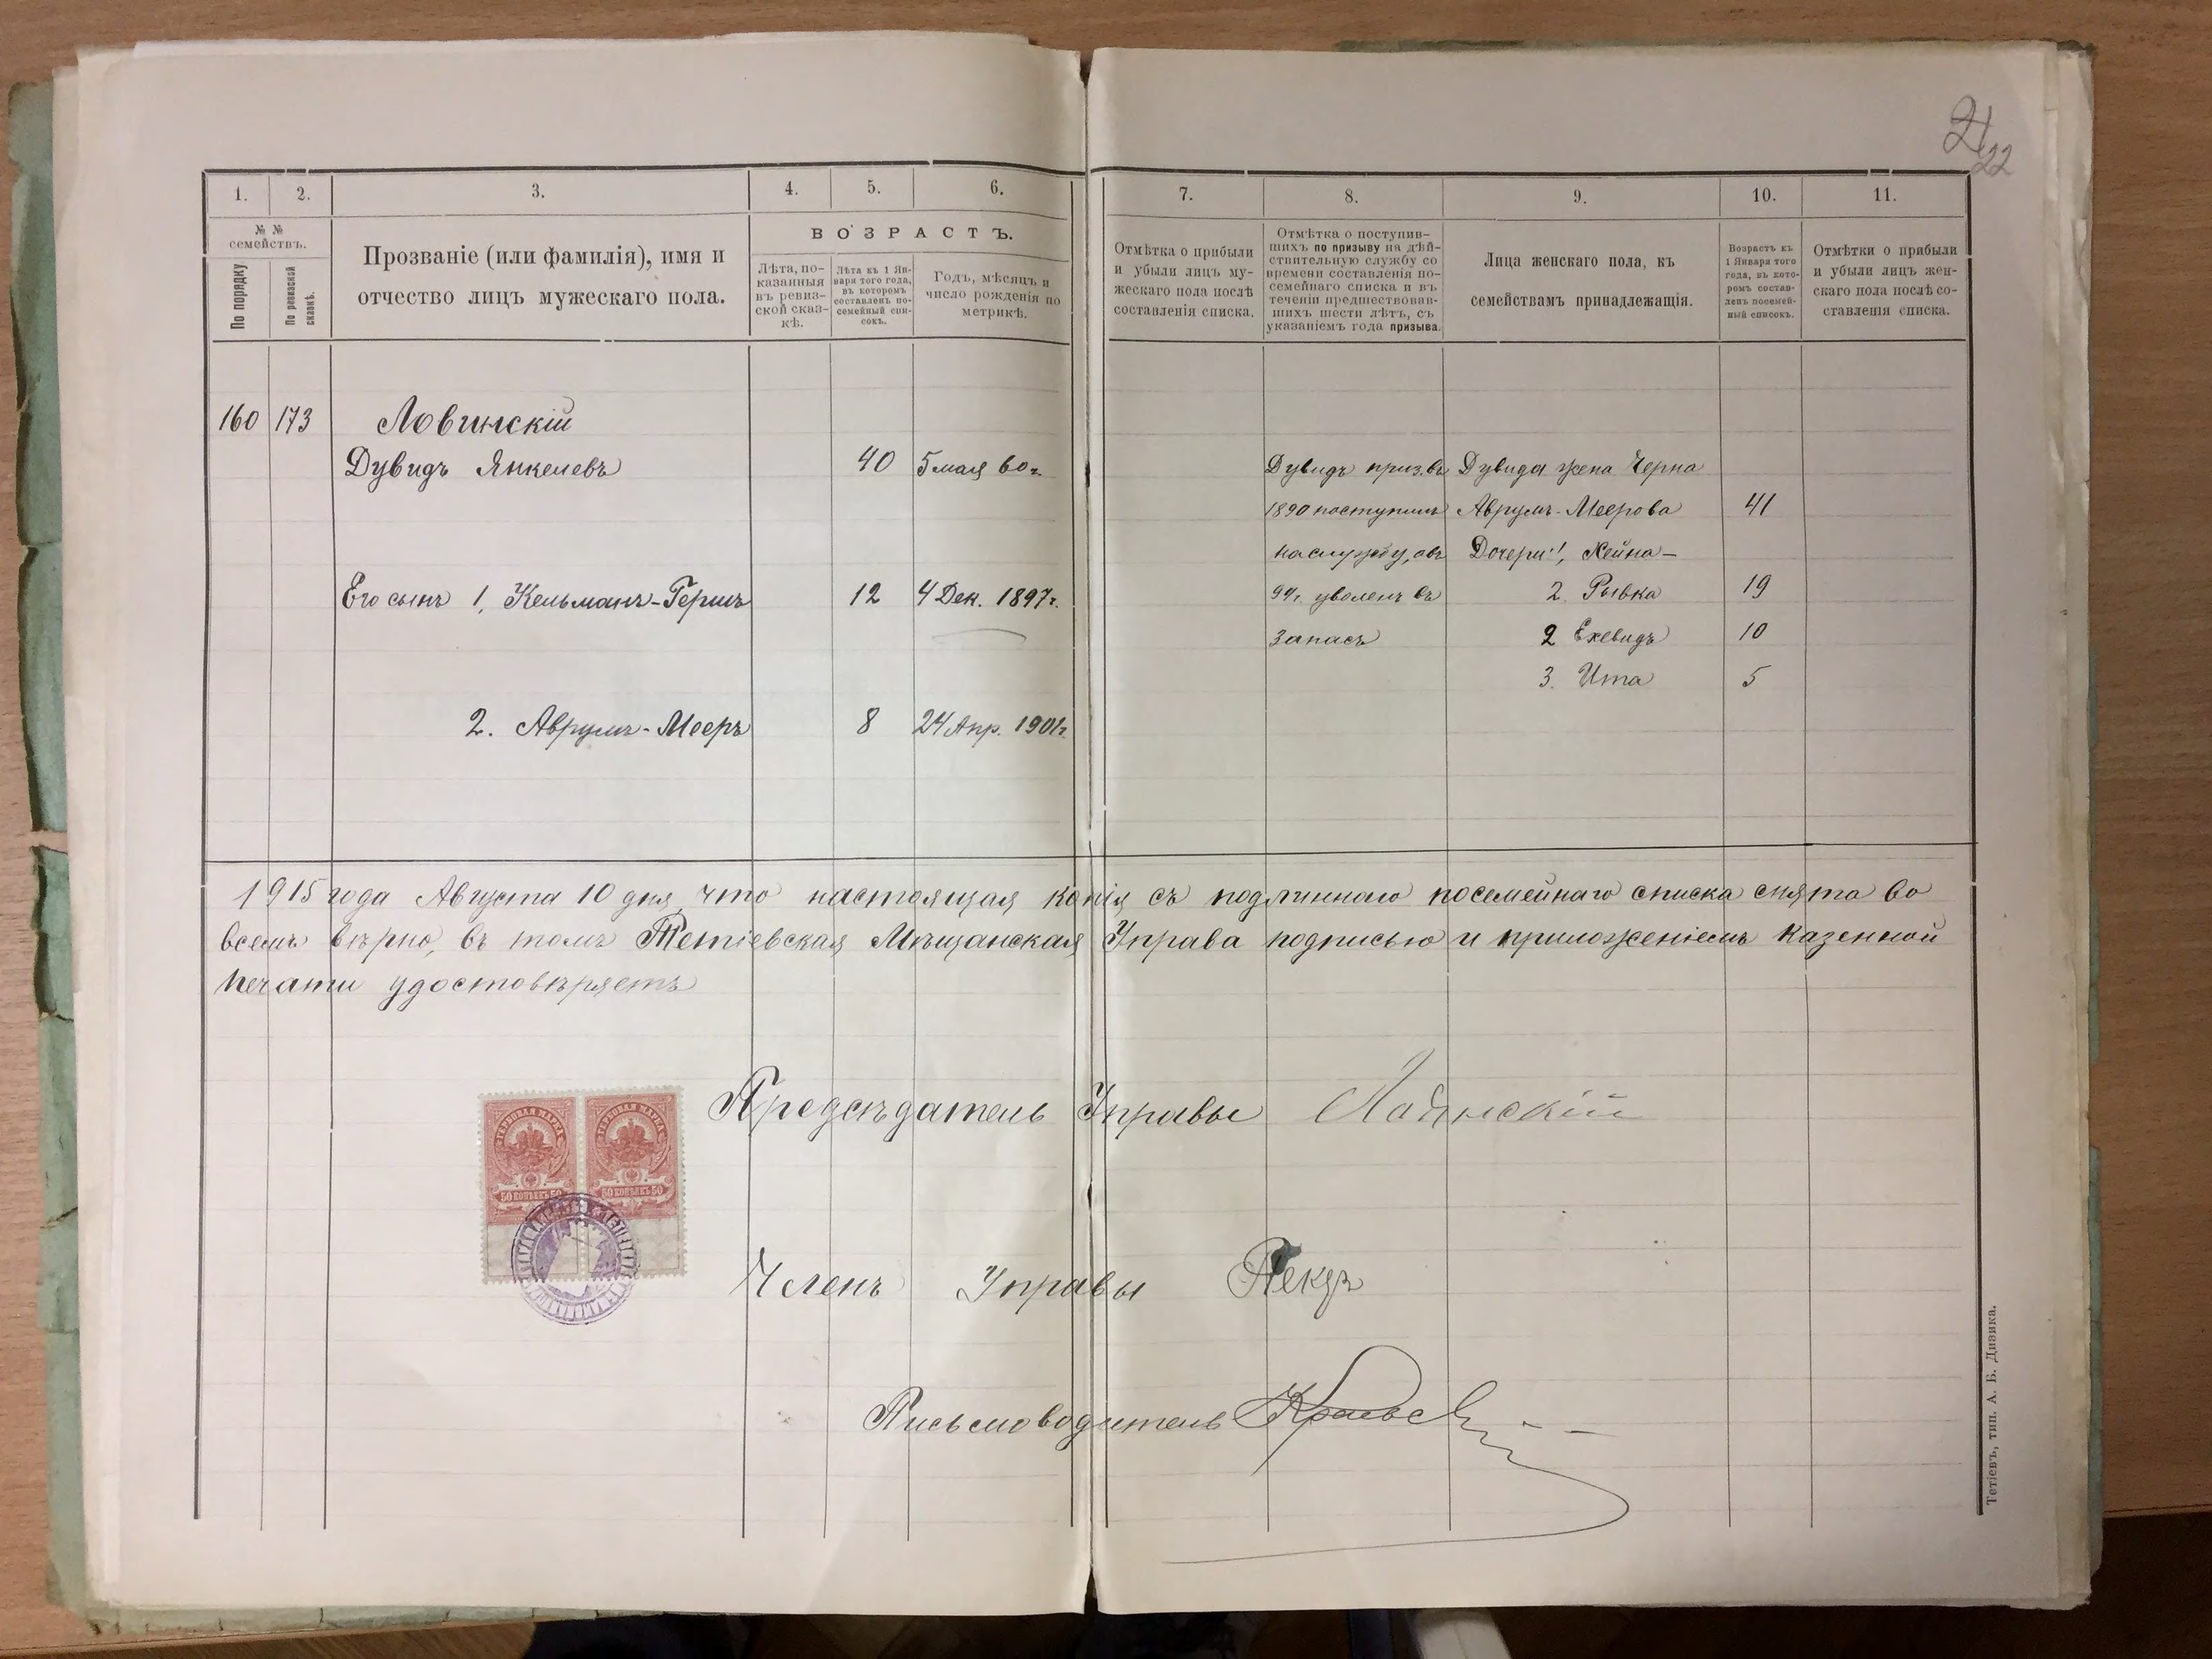 21
22
1.
2.
3.
4.
5.
6.
7.
8.
9.
10.
11.
№ №
семействъ.
По порядку
По ревизской
сказкѣ.
Прозваніе (или фамилія), имя и
отчество лицъ мужескаго пола.
ВОЗРАСТЪ.
Лѣта, по-
казанныя
въ ревиз-
ской сказ-
кѣ.
Лѣта къ 1 Ян-
варя того года,
въ которомъ
составленъ по-
семейный спи-
сокъ.
Годъ, мѣсяцъ и
число рожденія по
метрикѣ.
Отмѣтка о прибыли
и убыли лицъ му-
жескаго пола послѣ
составленія списка.
Отмѣтка о поступив-
шихъ по призыву на дѣй-
ствительную службу со
времени составленія по-
семейнаго списка и въ
теченіи предшествовав-
шихъ шести лѣтъ, съ
указаніемъ года призыва.
Лица женскаго пола, къ
семействамъ принадлежащія.
Возрастъ къ
1 Января того
года, въ кото-
ромъ состав-
ленъ посемей-
ный списокъ.
Отмѣтки о прибыли
и убыли лицъ жен-
скаго пола послѣ со-
ставленія списка.
160 173 Ловинскій
Дувидъ Янкелевъ 40 5 мая 60 г.
Его сынъ 1, Кельманъ-Гершъ 12 4 Дек. 1897 г.
2. Аврумъ-Мееръ 8 24 Апр. 1901 г.
Дувидъ приз. въ
1890 поступилъ
на службу, а въ
94 г. уволенъ въ
запасъ
Дувида жена Черна
Аврумъ-Меерова 41
Дочери: 1, Хейна-
2. Рывка 19
2 Ехевидъ 10
3. Ита 5
1915 года Августа 10 дня, что настоящая копія съ подлиннаго посемейнаго списка снята во
всемъ вѣрно, въ томъ Тетіевская Мѣщанская Управа подписью и приложеніемъ казенной
печати удостовѣряетъ
Предсѣдатель Управы
ГЕРБОВАЯ МАРКА
50 КОПѢЕКЪ 50
ГЕРБОВАЯ МАРКА
50 КОПѢЕКЪ 50
Членъ Управы
Письмоводитель
Тетіевъ, тип. А. Б. Дизика.